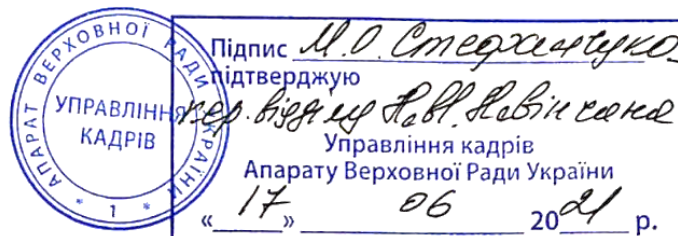 АПАРАТ ВЕРХОВНОЇ РАДИ УКРАЇНИ
* 1 *
УПРАВЛІННЯ
КАДРІВ
Підпис М.О. Стефанчука
підтверджую
кер. відділу Н.
Управління кадрів
Апарату Верховної Ради України
«17» 06 2021 р.